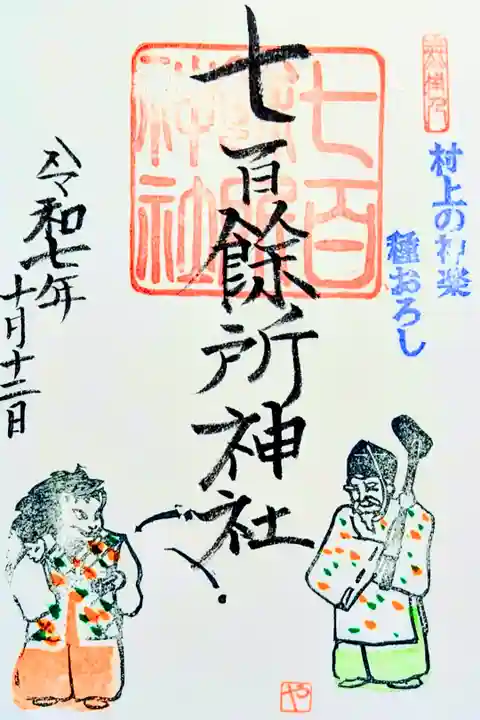 村上の神楽
種おろし
七百餘所神社
七百
餘所
神社
令和七年
十月十二日
や